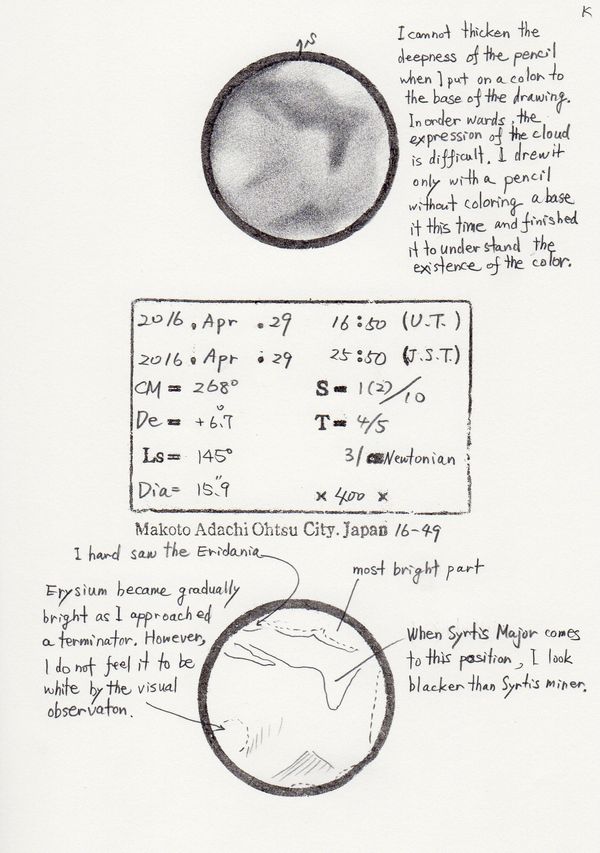 K
S
I cannot thicken the
deepness of the pencil
when I put on a color to
the base of the drawing.
In order wards, the
expression of the cloud
is difficult. I drew it
only with a pencil
without coloring a base
it this time and finished
it to under stand the
existence of the color.
2016. Apr . 29 16:50 (U.T.)
2016. Apr . 29 25:50 (J.S.T.)
CM = 268° S = 1(2)/10
De = +6.°7 T = 4/5
Ls = 145° 31 cm Newtonian
Dia = 15."9 × 400 ×
Makoto Adachi Ohtsu City. Japan 16-49
I hard saw the Eridania
most bright part
Erysium became gradually
bright as I approached
a terminator. However,
I do not feel it to be
white by the visual
observaton.
When Syrtis Major comes
to this position, I look
blacker than Syrtis miner.